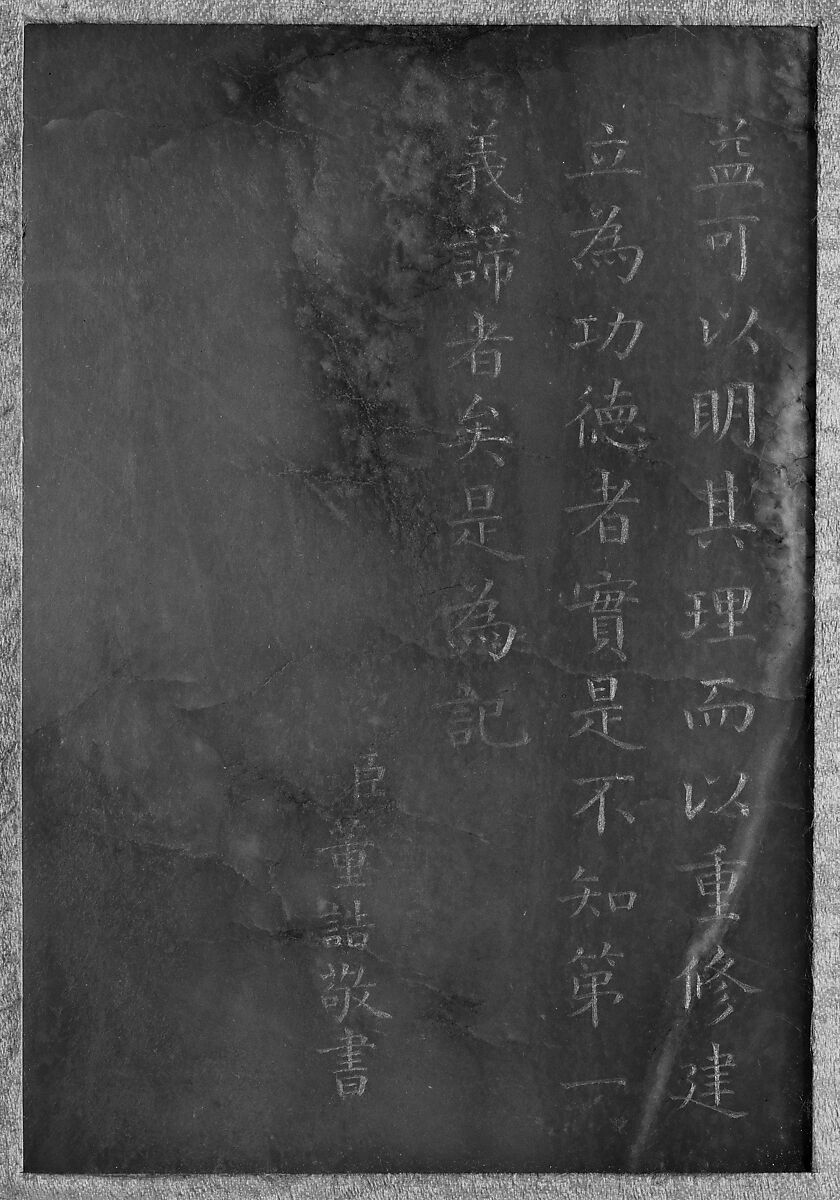 益可以明其理而以重修建
立為功德者實是不知第一
義諦者矣是為記
臣董誥敬書